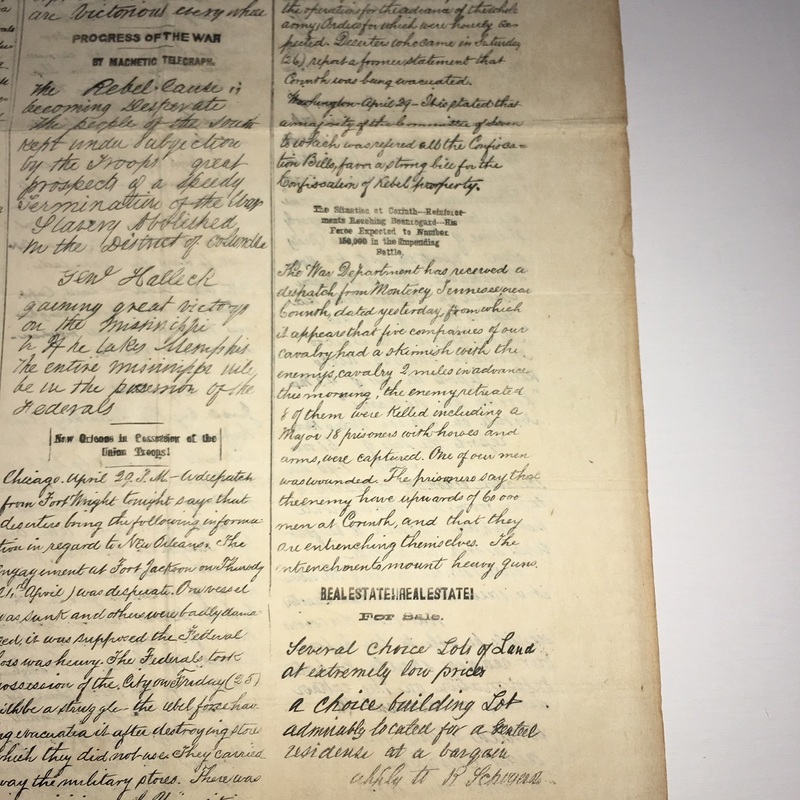 are victorious every where
PROGRESS OF THE WAR
BY MAGNETIC TELEGRAPH.
The Rebel Cause is
becoming Desperate
the people of the South
kept under Subjection
by the Troops great
prospects of a speedy
Termination of the War
Slavery Abolished
in the District of Columbia
Genl Halleck
gaining great victorys
on the Mississippi
If he takes Memphis
the entire Mississippi will
be in the possession of the
Federals
New Orleans in Possession of the
Union Troops!
Chicago. April 29. P.M.— despatch
from Fort Wright tonight says that
deserters bring the following informa-
tion in regard to New Orleans. The
engagement at Fort Jackson on Thursday
April) was desperate. One vessel
was sunk and others were badly dama-
ged, it was supposed the Federal
loss was heavy. The Federals took
possession of the City on Friday (25)
a struggle the rebel force hav-
ng evacuated it after destroying stores
which they did not use. They carried
away the military stores. There was
the operations for the advance of the whole
army; Orders for which were hourly ex-
pected. Deserter who came in Saturday
(26) report a former statement that
Corinth was being evacuated.
Washington April 29— It is stated that
a majority of the Committee of
to which was refered all the Confisca-
tion Bills, favor a strong bill for the
Confiscation of Rebel property.
The Situation at Corinth—Reinforce-
ments Reaching Beauregard—His
Force Expected to Number
150,000 in the Impending
Battle.
The War Department has received a
despatch from Monterey, Tennessee, near
Corinth, dated yesterday, from which
it appears that five companies of our
cavalry had a skirmish with the
enemy's cavalry 2 miles in advance
this morning, the enemy retreated
8 of them were killed including a
Major 18 prisoners with horses and
arms, were captured. One of our men
was wounded. The prisoners say that
the enemy have upwards of 60 000
men at Corinth, and that they
are entrenching themselves. The
entrenchments mount heavy guns.
REAL ESTATE! REAL ESTATE!
For Sale.
Several choice Lots of Land
at extremely low prices
a choice building Lot
admirably located for a genteel
residense at a bargain
apply to R